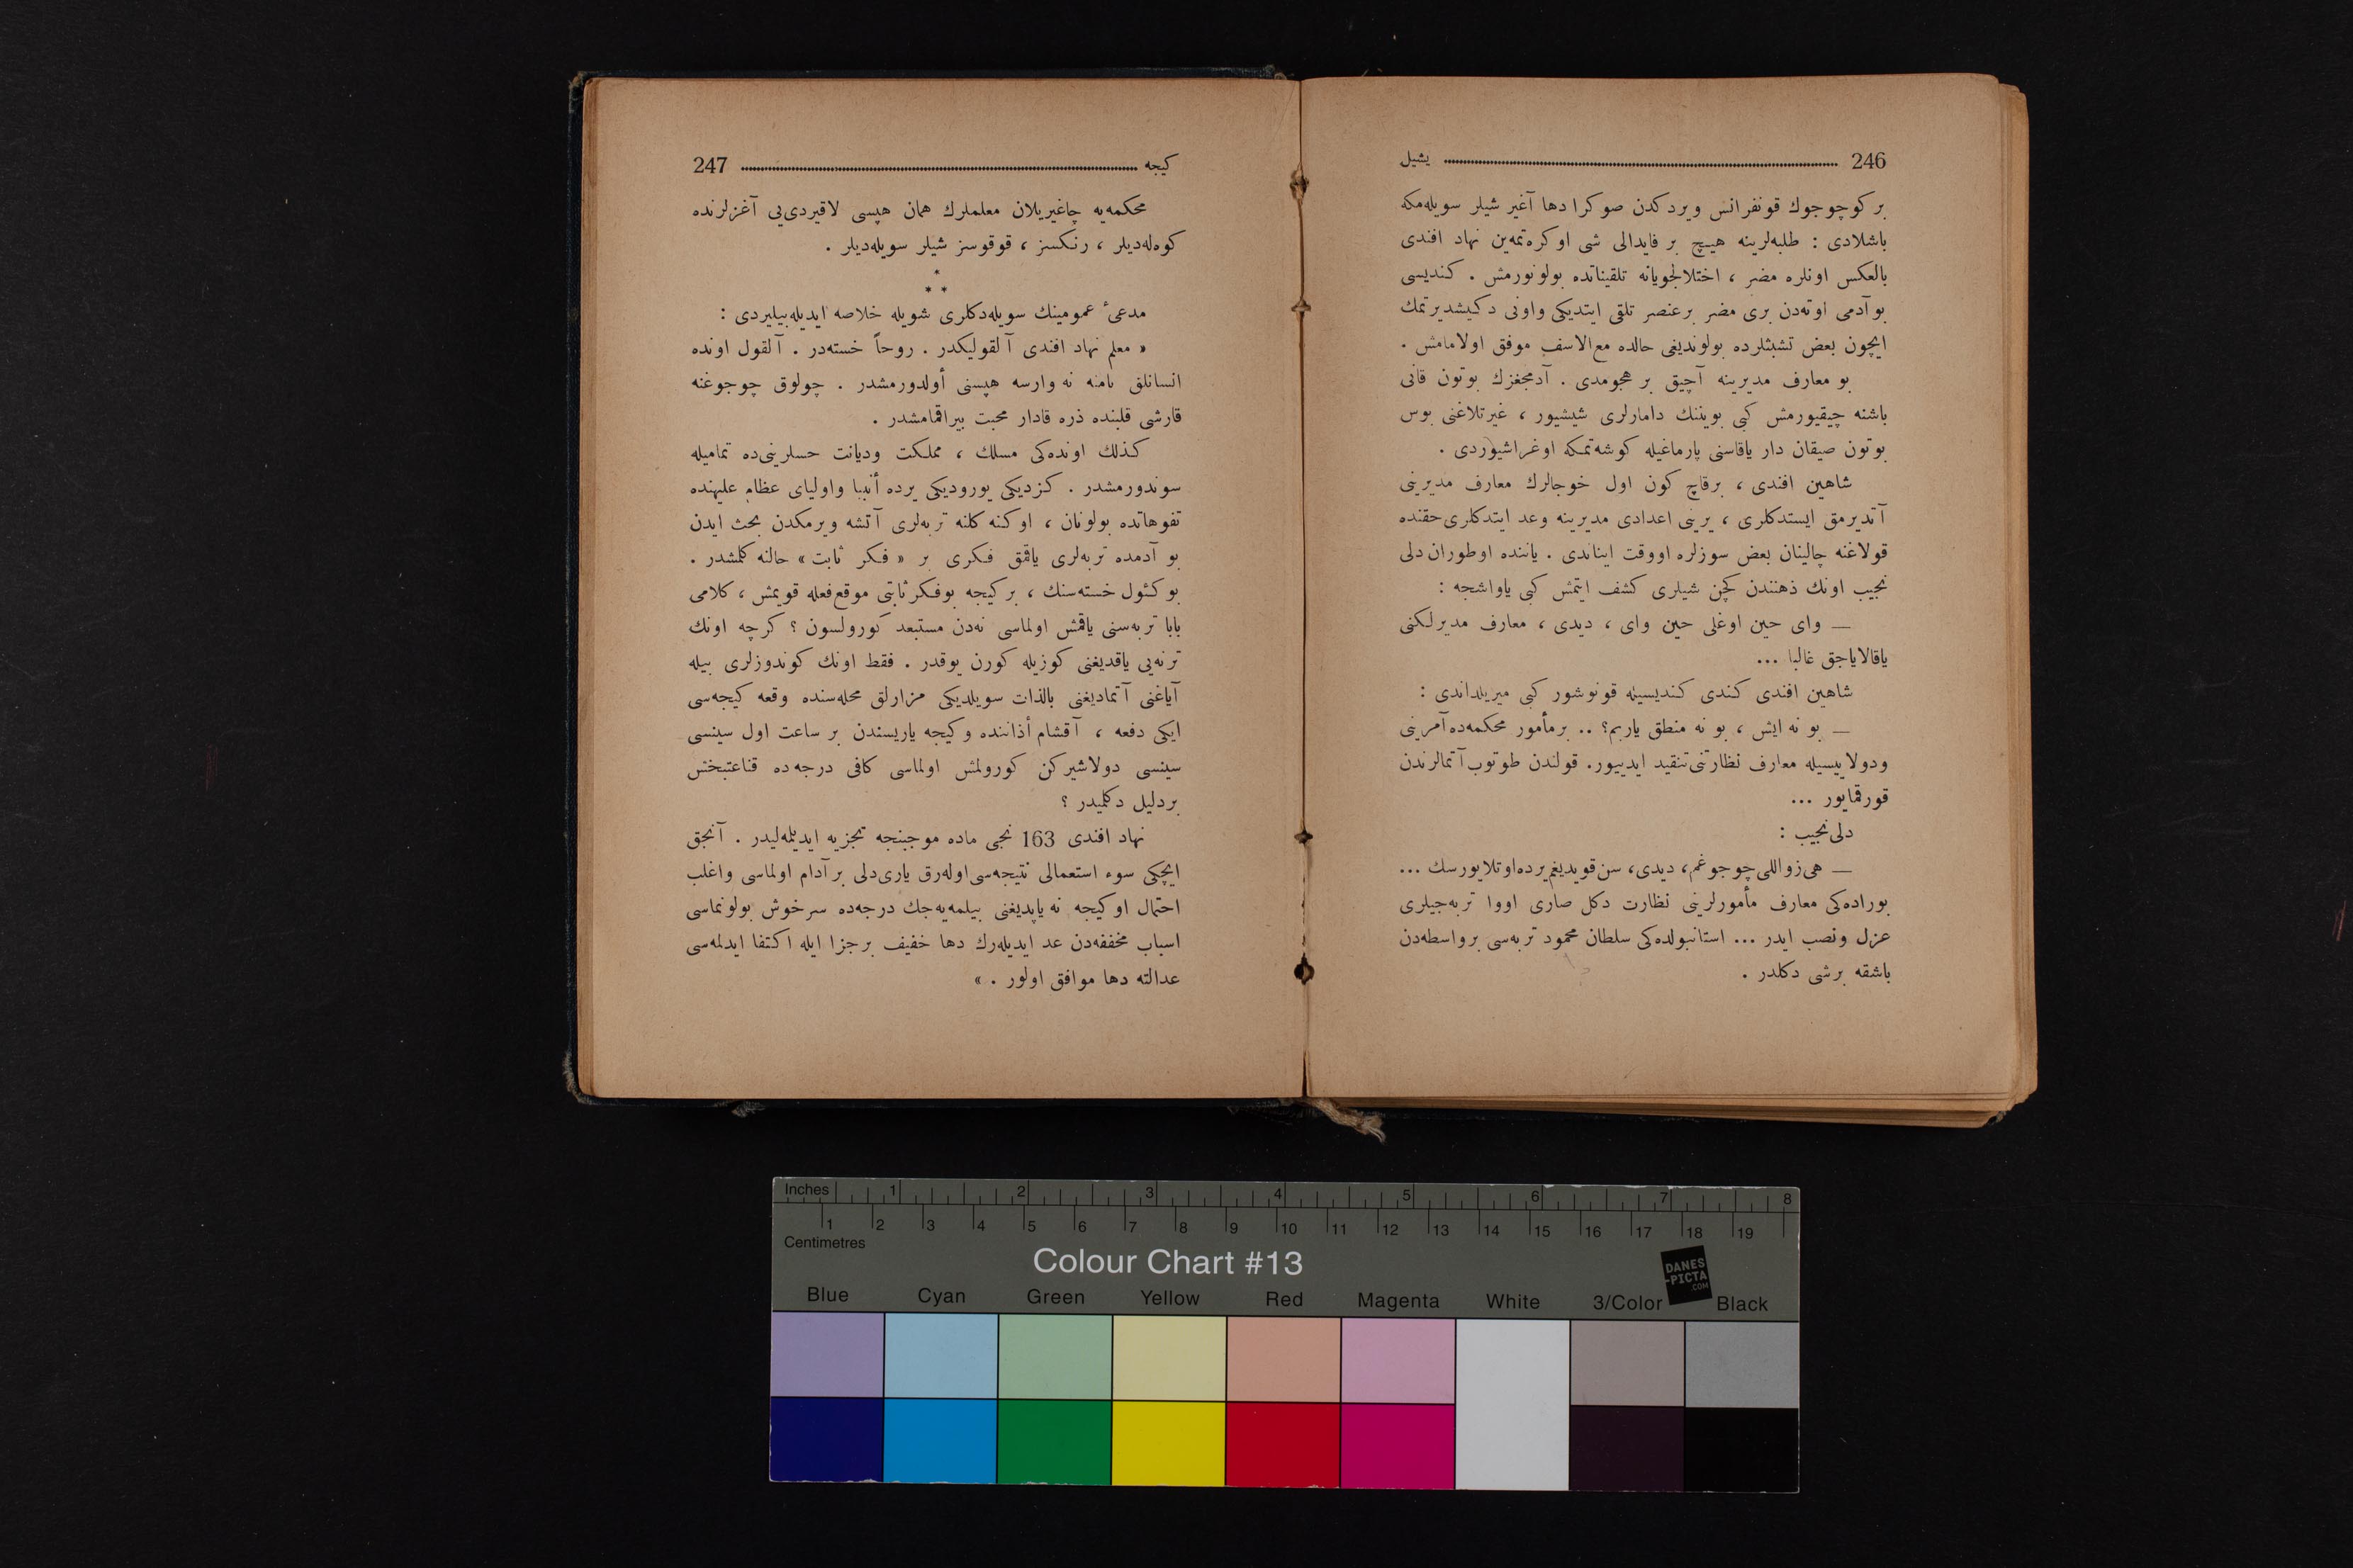 246 يشيل
بر كوچوجوك قونفرانس ويردكدن صوكرا دها آغير شيلر سويله‌مكه
باشلادى : طلبه‌لرينه هيچ بر فايدالى شى اوكره‌تمه‌ين نهاد افندى
بالعكس اونلره مضر ، اختلالجويانه تلقيناتده بولونورمش . كنديسى
بو آدمى اوته‌دن برى مضر برعنصر تلقى ايتديكى واونى دكيشديرتمك
ايچون بعض تشبثلرده بولونديغى حالده مع‌الاسف موفق اولامامش .
بو معارف مديرينه آچيق بر هجومدى . آدمجغزك بوتون قانى
باشنه چيقيورمش كبى بويننك دامارلرى شيشيور ، غيرتلاغنى بوس
بوتون صيقان دار ياقاسنى پارماغيله كوشه‌تمكه اوغراشيوردى .
شاهين افندى ، برقاچ كون اول خوجالرك معارف مديرينى
آتديرمق ايستدكلرى ، يرينى اعدادى مديرينه وعد ايتدكلرى حقنده
قولاغنه چالينان بعض سوزلره اووقت ايناندى . ياننده اوطوران دلى
نجيب اونك ذهنندن كچن شيلرى كشف ايتمش كبى ياواشجه :
— واى حين اوغلى حين واى ، ديدى ، معارف مديرلكنى
ياقالاياجق غالبا ...
شاهين افندى كندى كنديسيله قونوشور كبى ميريلداندى :
— بو نه ايش ، بو نه منطق ياربم؟ .. برمأمور محكمه‌ده آمرينى
ودولاييسيله معارف نظارتنى تنقيد ايدييور. قولندن طوتوب آتمالرندن
قورقمايور ...
دلى نجيب :
— هى زواللى چوجوغم، ديدى، سن قويديغم يرده اوتلايورسك ...
بوراده‌كى معارف مأمورلرينى نظارت دكل صارى اووا تربه‌جيلرى
عزل ونصب ايدر ... استانبولده‌كى سلطان محمود تربه‌سى برواسطه‌دن
باشقه برشى دكلدر .
كيجه 247
محكمه‌يه چاغيريلان معلملرك همان هپسى لاقيردى‌يى آغزلرنده
كوه‌له‌ديلر ، رنكسز ، قوقوسز شيلر سويله‌ديلر .
*
* *
مدعىٔ عمومينك سويله‌دكلرى شويله خلاصه ايديله‌بيليردى :
« معلم نهاد افندى آلقوليكدر . روحاً خسته‌در . آلقول اونده
انسانلق نامنه نه وارسه هپسنى أولدورمشدر . چولوق چوجوغنه
قارشى قلبنده ذره قادار محبت بيراقمامشدر .
كذلك اونده‌كى مسلك ، مملكت وديانت حسلرينى‌ده تماميله
سوندورمشدر . كزديكى يوروديكى يرده أنبيا واولياى عظام عليهنده
تفوهاتده بولونان ، اوكنه كلنه تربه‌لرى آتشه ويرمكدن بحث ايدن
بو آدمده تربه‌لرى ياقمق فكرى بر « فكر ثابت» حالنه كلمشدر .
بو كئول خسته‌سنك ، بر كيجه بوفكر ثابتى موقع‌فعله قويمش ، كلامى
بابا تربه‌سنى ياقمش اولماسى نه‌دن مستبعد كورولسون ؟ كرچه اونك
تربه‌يى ياقديغنى كوزيله كورن يوقدر . فقط اونك كوندوزلرى بيله
آياغنى آتماديغنى بالذات سويلديكى مزارلق محله‌سنده وقعه كيجه‌سى
ايكى دفعه ، آقشام أذاننده وكيجه ياريسندن بر ساعت اول سينسى
سينسى دولاشيركن كورولمش اولماسى كافى درجه‌ده قناعتبخش
بردليل دكليدر ؟
نهاد افندى 163 نجى ماده موجبنجه تجزيه ايديلمه‌ليدر . آنجق
ايچكى سوء استعمالى نتيجه‌سى اوله‌رق يارى‌دلى بر آدام اولماسى واغلب
احتمال او كيجه نه ياپديغنى بيلمه‌يه‌جك درجه‌ده سرخوش بولونماسى
اسباب مخففه‌دن عد ايديله‌رك دها خفيف بر جزا ايله اكتفا ايدلمه‌سى
عدالته دها موافق اولور . »
Inches 1 2 3 4 5 6 7 8
1 2 3 4 5 6 7 8 9 10 11 12 13 14 15 16 17 18 19
Centimetres
Colour Chart #13
DANES
-PICTA
.COM
Blue Cyan Green Yellow Red Magenta White 3/Color Black